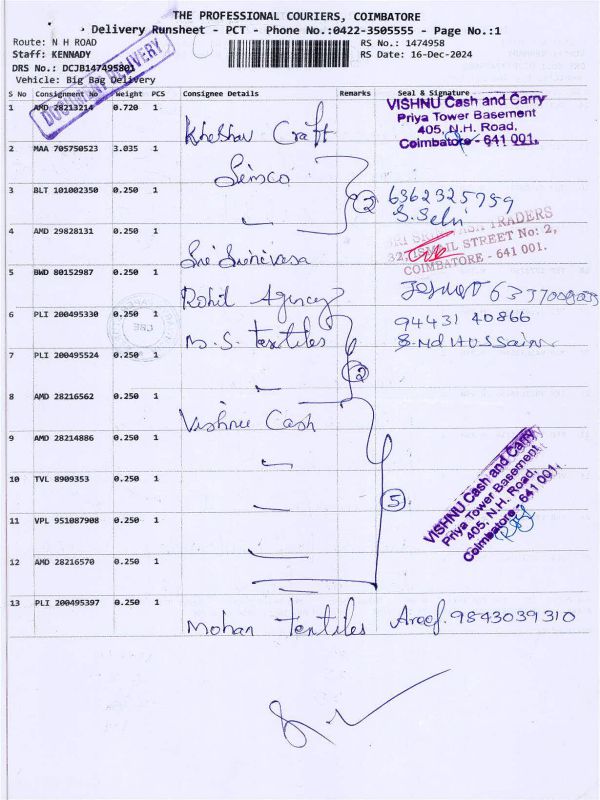 THE PROFESSIONAL COURIERS, COIMBATORE
Delivery Runsheet - PCT - Phone No.:0422-3505555 - Page No.:1
Route: N H ROAD
RS No.: 1474958
Staff: KENNADY
RS Date: 16-Dec-2024
DRS No.: DCJB147495801
Vehicle: Big Bag Delivery
DOCUMENT DELIVERY
S No Consignment No Weight PCS Consignee Details Remarks Seal & Signature
1 AMD 28213214 0.720 1
VISHNU Cash and Carry
Priya Tower Basement
405, N.H. Road,
Coimbatore - 641 001.
Craft
2 MAA 705750523 3.035 1
Simco
3 BLT 101002350 0.250 1
2
6362325759
S. Selvi
4 AMD 29828131 0.250 1
Sri Srinivasa
SRI SRINIVASA TRADERS
32, ISMAIL STREET No: 2,
COIMBATORE - 641 001.
5 BWD 80152987 0.250 1
Rohit Agency
6 PLI 200495330 0.250 1
M.S. Textiles
94431 40866
CBE
7 PLI 200495524 0.250 1
2
8 AMD 28216562 0.250 1
Vishnu Cash
9 AMD 28214886 0.250 1
10 TVL 8909353 0.250 1
5
VISHNU Cash and Carry
Priya Tower Basement
405, N.H. Road,
Coimbatore - 641 001.
11 VPL 951087908 0.250 1
12 AMD 28216570 0.250 1
13 PLI 200495397 0.250 1
Mohan Textiles
Areef. 9843039310